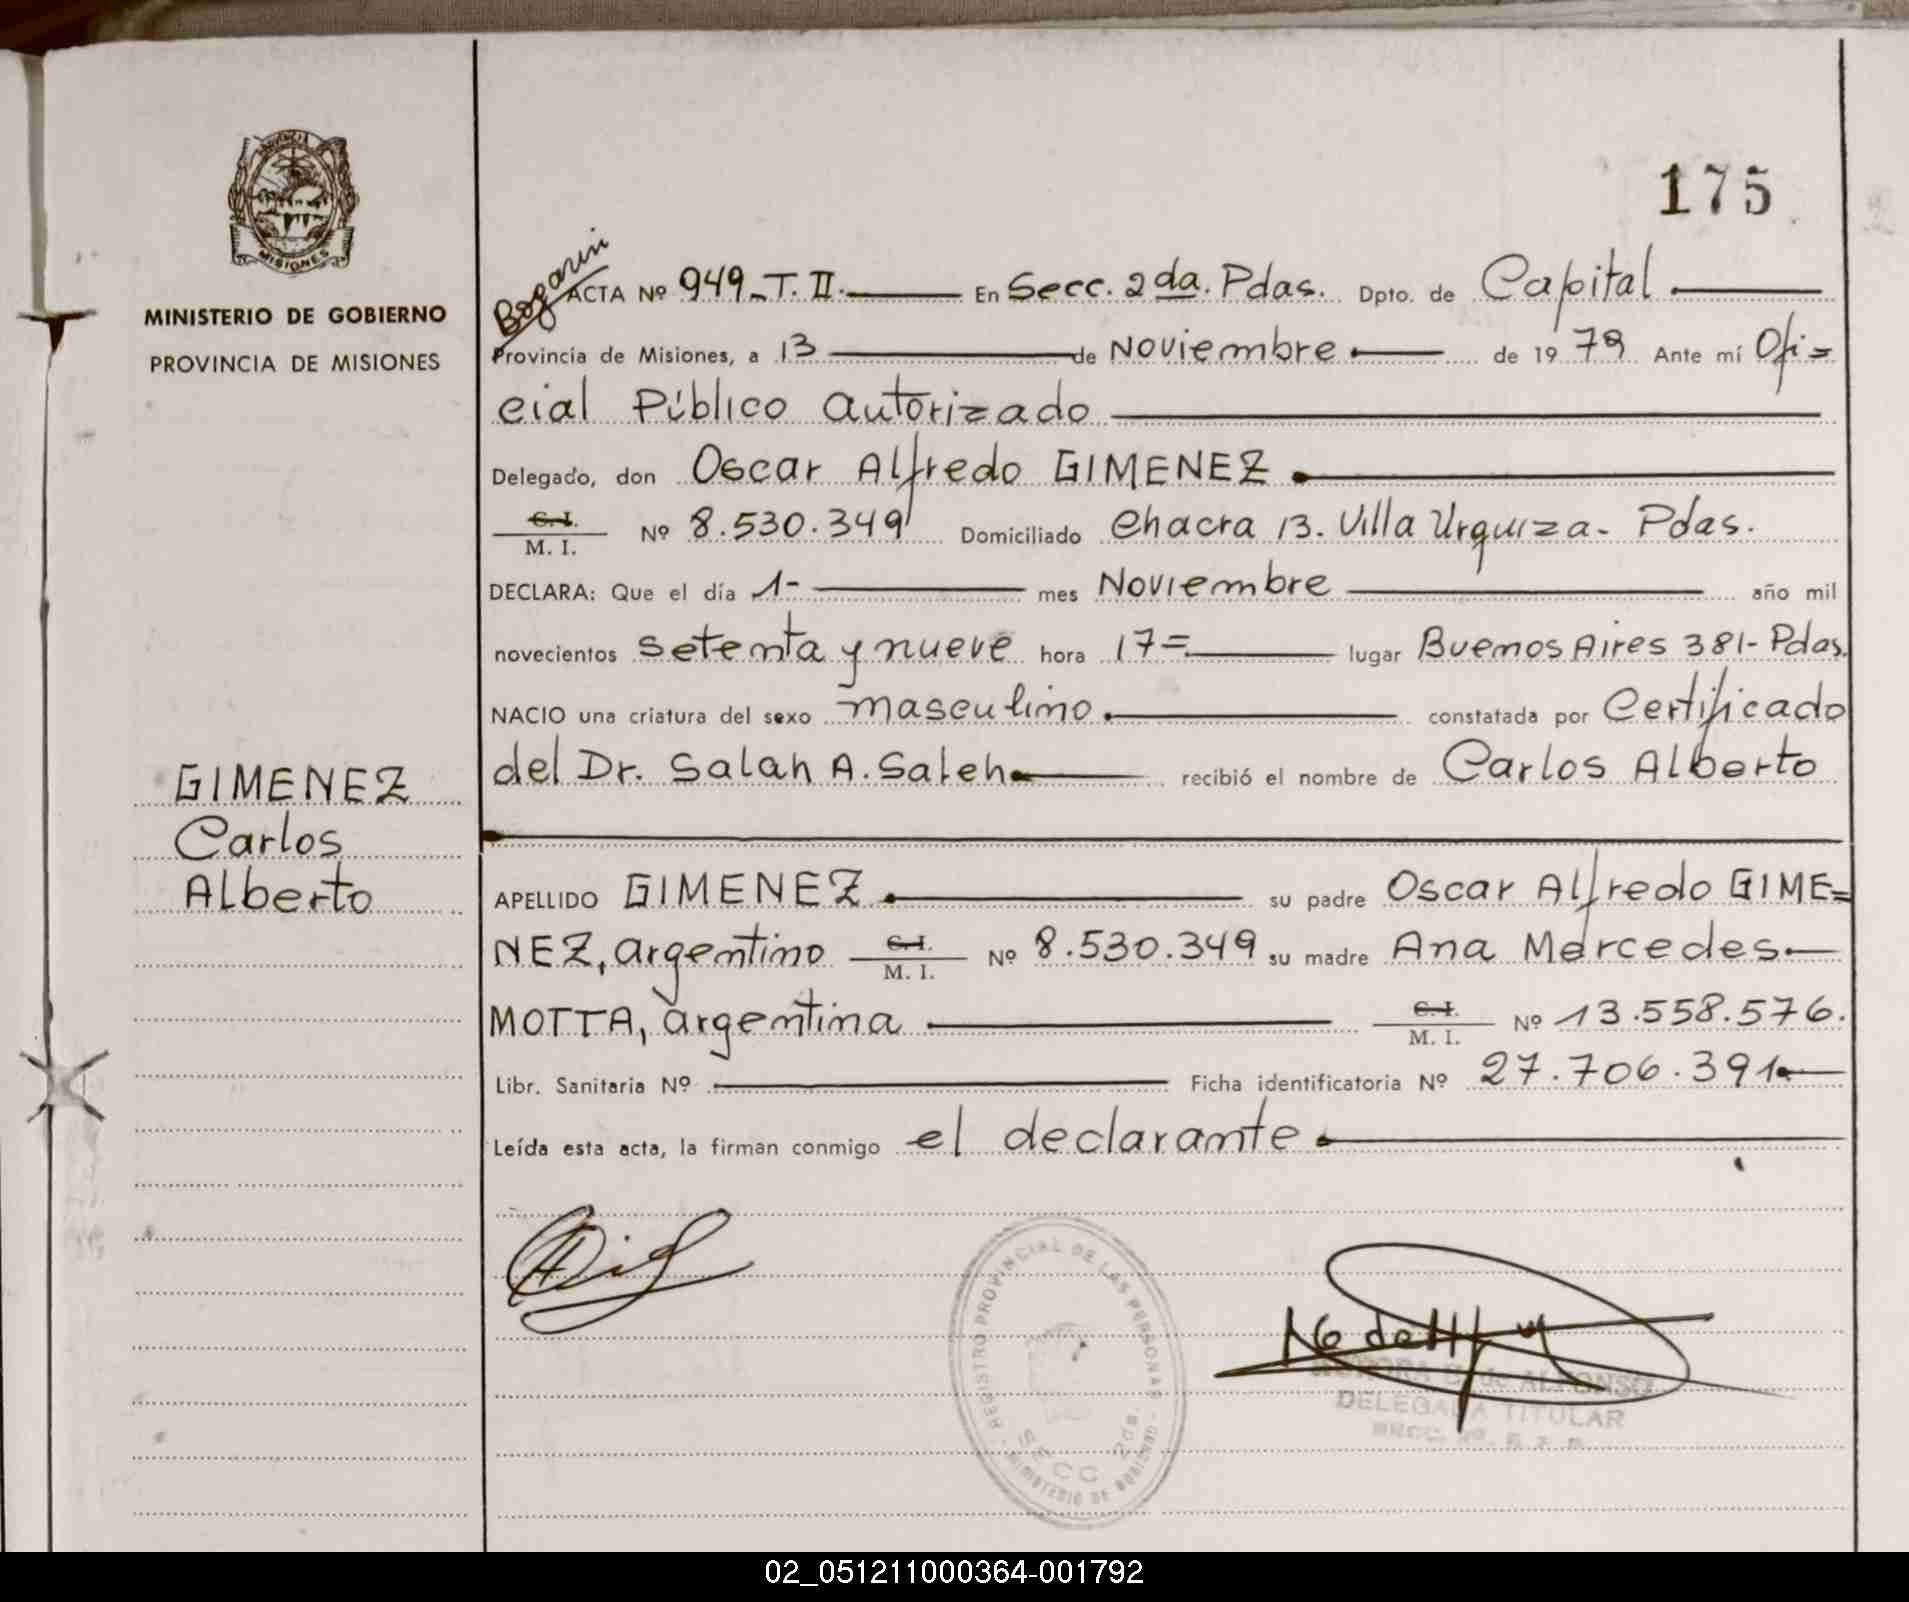 PROVINCIA
MISIONES
MINISTERIO DE GOBIERNO
PROVINCIA DE MISIONES
GIMENEZ
Carlos
Alberto
175
Bogarin
ACTA Nº 949_T. II. En Secc. 2da. Pdas. Dpto. de Capital
Provincia de Misiones, a 13 de Noviembre de 1979 Ante mí Ofi=
cial Público autorizado
Delegado, don Oscar Alfredo GIMENEZ
C. I.
M. I. Nº 8.530.349 Domiciliado Chacra 13. Villa Urquiza- Pdas.
DECLARA: Que el día 1- mes Noviembre año mil
novecientos setenta y nueve hora 17= lugar Buenos Aires 381- Pdas.
NACIO una criatura del sexo masculino constatada por Certificado
del Dr. Salah A. Saleh recibió el nombre de Carlos Alberto
APELLIDO GIMENEZ su padre Oscar Alfredo GIME=
NEZ, argentino C. I. M. I. Nº 8.530.349 su madre Ana Mercedes
MOTTA, argentina C. I. M. I. Nº 13.558.576.
Libr. Sanitaria Nº Ficha identificatoria Nº 27.706.391
Leída esta acta, la firman conmigo el declarante
REGISTRO PROVINCIAL DE LAS PERSONAS
SECC 2da.
MINISTERIO DE GOBIERNO
de ALFONSO
DELEGADA TITULAR
02_051211000364-001792